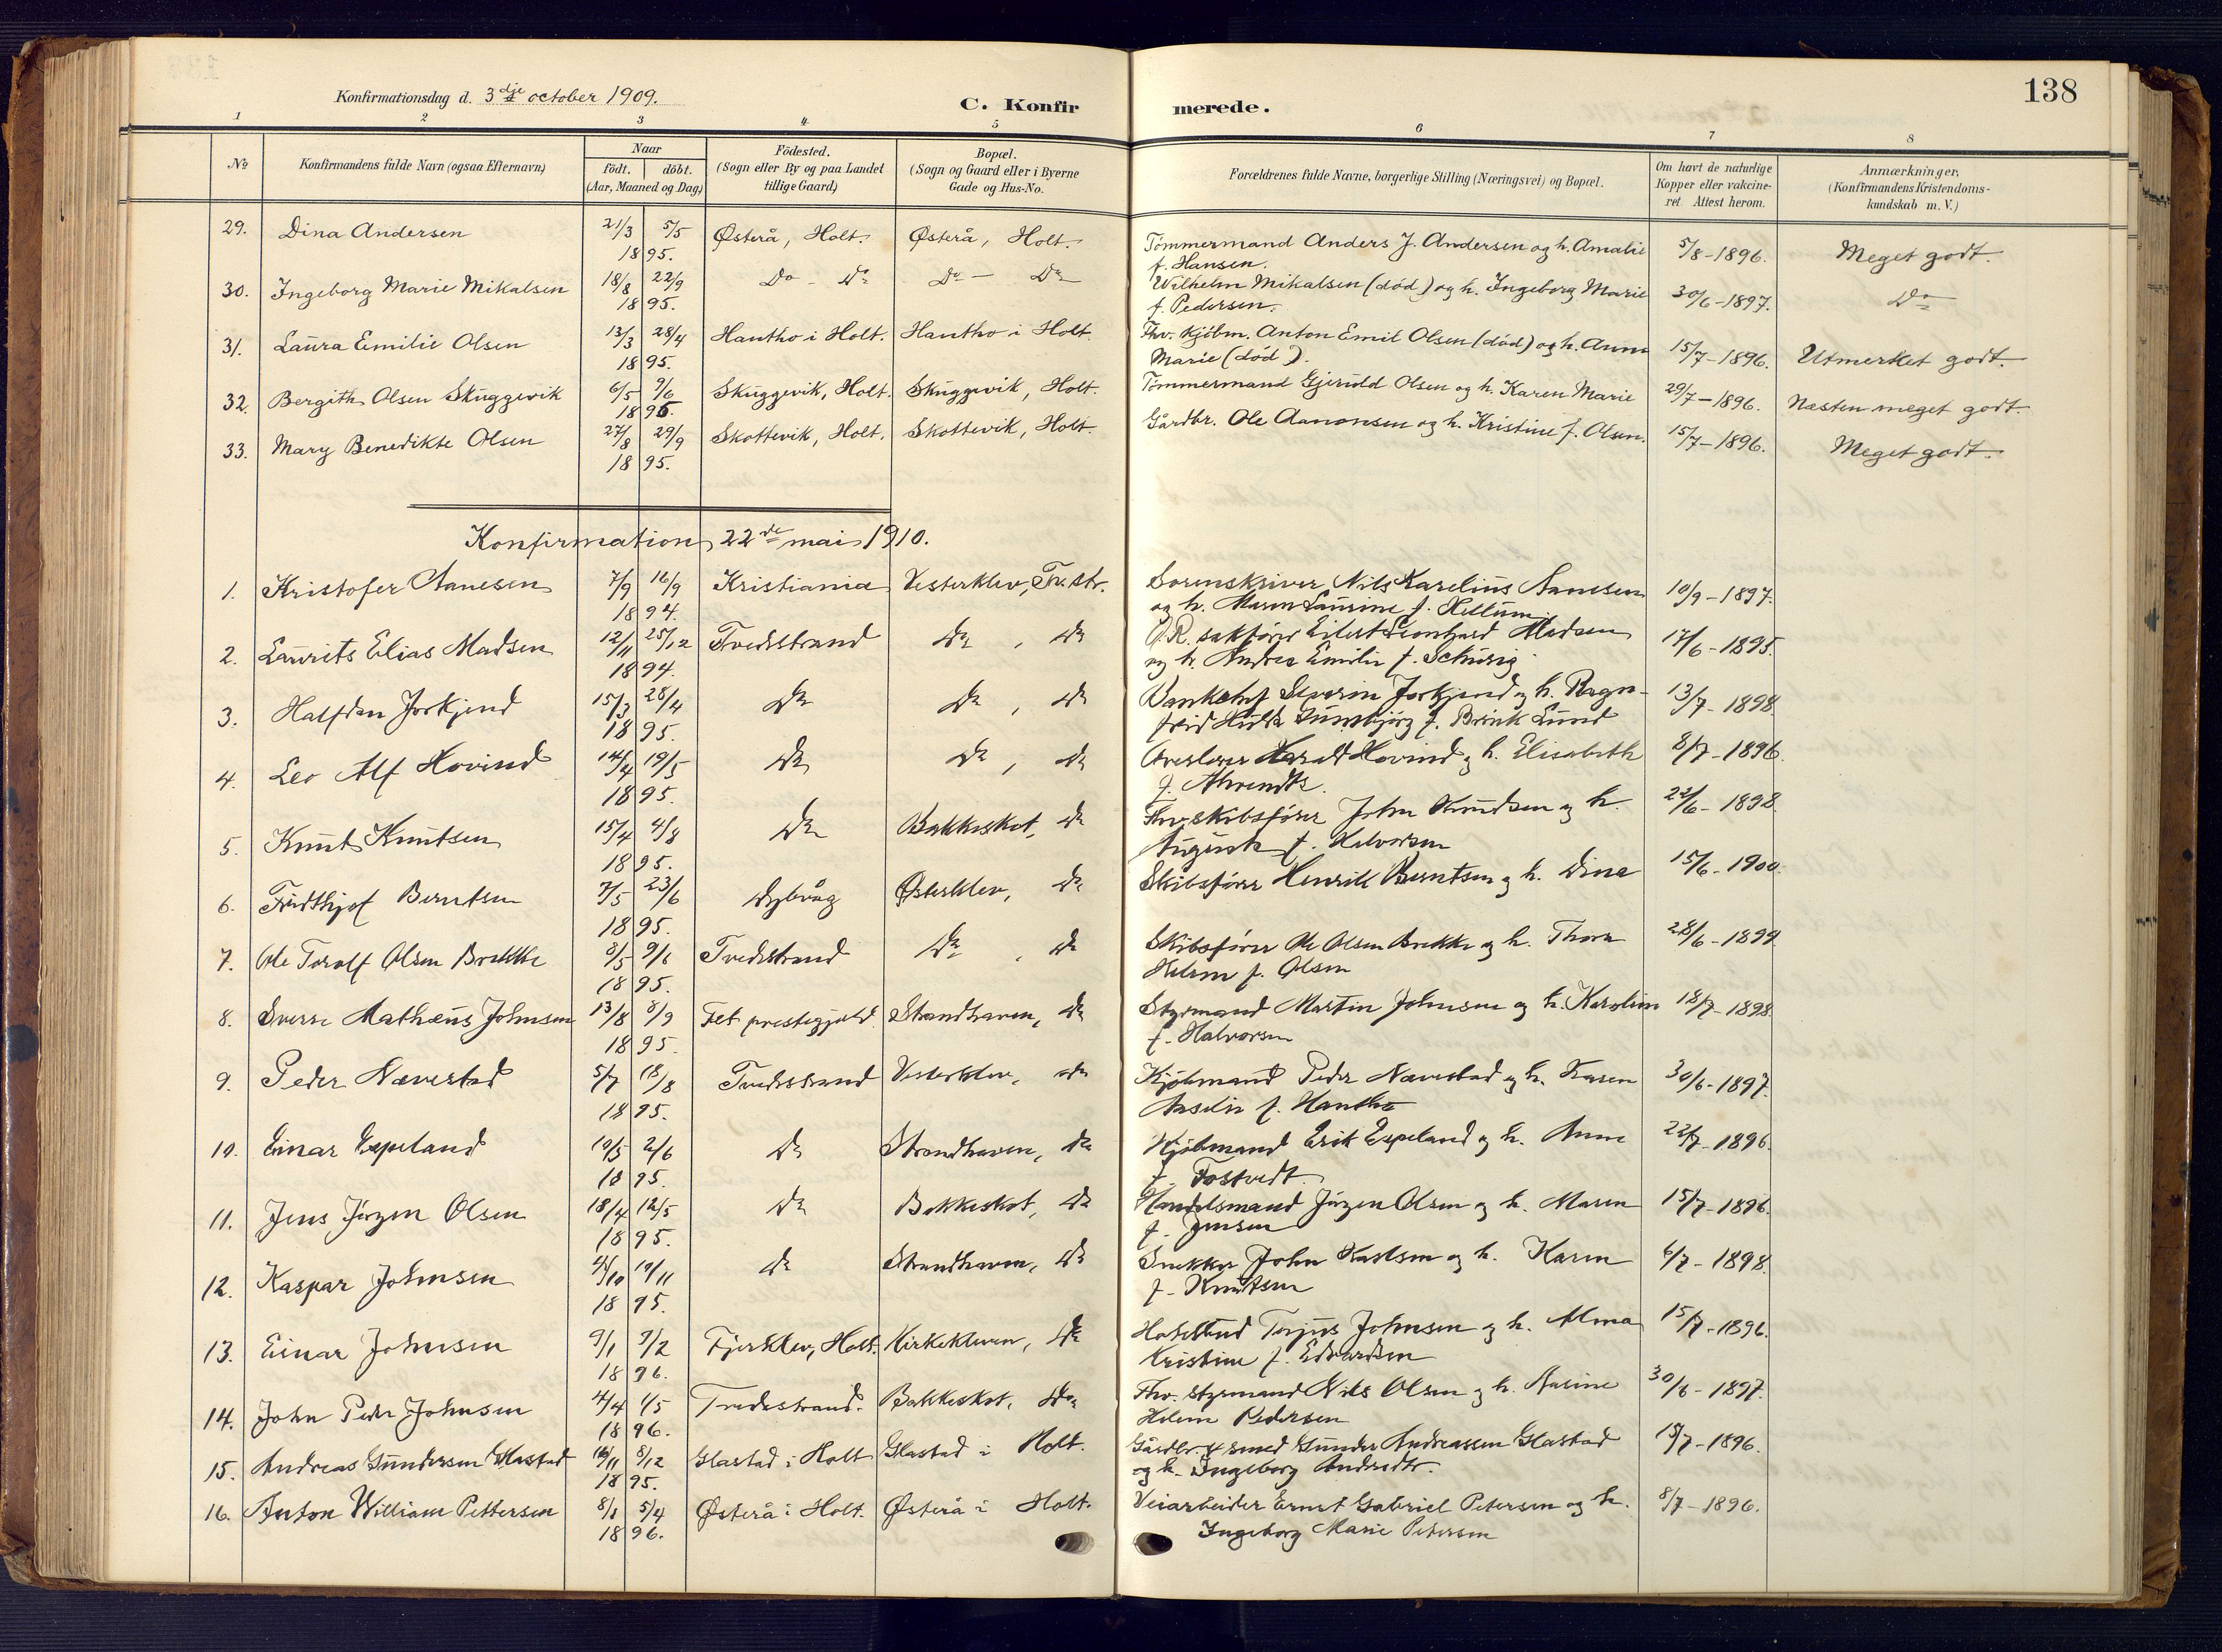 138
Konfirmationsdag d. 3dje october 1909.
C. Konfirmerede.
1 2 3 4 5 6 7 8
No
Konfirmandens fulde Navn (ogsaa Efternavn)
Naar
födt. döbt.
(Aar, Maaned og Dag)
Födested.
(Sogn eller By og paa Landet
tillige Gaard)
Bopæl.
(Sogn og Gaard eller i Byerne
Gade og Hus-No.
Forældrenes fulde Navne, borgerlige Stilling (Næringsvei) og Bopæl.
Om havt de naturlige
Kopper eller vakcine-
ret. Attest herom.
Anmærkninger.
(Konfirmandens Kristendoms-
kundskab m. V.)
29. Dina Andersen 21/3 5/5 Østerå, Holt. Østerå, Holt. Tömmermand Anders J. Andersen og h. Amalie 5/8-1896. Meget godt.
1895. f. Hansen.
30. Ingeborg Marie Mikalsen 18/8 22/9 Do - Do Do - Do Wilhelm Mikalsen (död) og h. Ingeborg Marie 30/6-1897. Do
1895. f. Pedersen.
31. Laura Emilie Olsen 13/3 28/4 Hantho i Holt. Hantho i Holt. Fhv. Kjöbm. Anton Emil Olsen (död) og h. Anna 15/7-1896. Utmerket godt.
1895. Marie (död).
32. Bergith Olsen Skuggevik 6/5 9/6 Skuggevik, Holt. Skuggevik, Holt. Tömmermand Gjeruld Olsen og h. Karen Marie 29/7-1896. Næsten meget godt.
1895.
33. Mary Benedikte Olsen 27/8 29/9 Skottevik, Holt. Skottevik, Holt. Gårdbr. Ole Aanonsen og h. Kristine f. Olsen. 15/7-1896. Meget godt.
1895.
Konfirmation 22de mai 1910.
1. Kristofer Aanesen 7/9 16/9 Kristiania Vesterklev, Tv.str. Sorenskriver Nils Karelius Aanesen 10/9-1897.
1894. og h. Maren Laurine f. Hellum
2. Laurits Elias Madsen 12/11 25/12 Tvedestrand Do, Do O.R. sakförer Eilert Leonhard Madsen 17/6-1895.
1894. og h. Andrea Emilie f. Schürig
3. Halfdan Jorkjend 15/3 28/4 Do Do, Do Bankchef Severin Jorkjend og h. Ragn- 13/7-1898.
1895. f. Brink Lund
4. Leo Alf Hovind 14/4 19/5 Do Do, Do Harald Hovind og h. Elisabeth 8/7-1896.
1895. f. Ahrendts.
5. Knut Knutsen 15/4 4/8 Do Bakkeskot, Do Fhv. skibsförer John Knudsen og h. 22/6-1898.
1895. Augusta f. Halvorsen
6. Fridthjof Berntsen 7/5 23/6 Dybvåg Østerklev, Do Skibsförer Henrik Berntsen og h. Dina 15/6-1900.
1895.
7. Ole Toralf Olsen Brekke 8/5 9/6 Tvedestrand Do, Do Skibsförer Ole Olsen Brekke og h. Thora 28/6-1899
1895. Helene f. Olsen
8. Sverre Mathæus Johnsen 13/8 8/9 Fet prestegjeld. Strandhaven, Do Styrmand Martin Johnsen og h. Karoline 18/7-1898.
1895. f. Halvorsen
9. Peder Nævestad 5/7 18/8 Tvedestrand Vesterklev, Do Kjöbmand Peder Nævestad og h. Karen 30/6-1897.
1895. f. Hantho
10. Einar Espeland 10/5 2/6 Do Strandhaven, Do Kjöbmand Erik Espeland og h. Anne 22/7-1896.
1895. f. Fostvedt.
11. Jens Jörgen Olsen 18/4 12/5 Do Bakkeskot, Do Handelsmand Jörgen Olsen og h. Maren 15/7-1896.
1895. f. Jensen
12. Kaspar Johnsen 4/10 10/11 Do Strandhaven, Do Snekker John Karlsen og h. Karen 6/7-1898.
1895. f. Knutsen
13. Einar Johnsen 9/1 9/2 Fjerklev, Holt. Kirkekleven, Do Hotelbud Terjus Johnsen og h. Alma 15/7-1896.
1896. Kristine f. Edvardsen
14. John Peder Johnsen 4/4 1/5 Tvedestrand. Bakkeskot, Do Fhv. styrmand Nils Olsen og h. Aasine 30/6-1897.
1896. Helene Pedersen
15. Andreas Gundersen Glastad 16/11 8/12 Glastad i Holt Glastad i Holt. Gårdbr. & smed Gunder Andreassen Glastad 15/7-1896.
1895. og h. Ingeborg Andersdtr.
16. Anton William Pettersen 8/1 5/4 Østerå i Holt. Østerå i Holt. Veiarbeider Ernst Gabriel Petersen og h. 8/7-1896.
1896. Ingeborg Marie Petersen